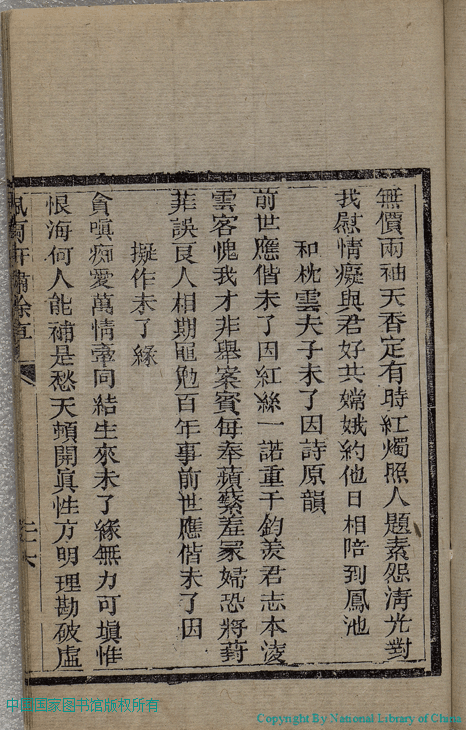 無價兩袖天香定有時紅燭照人題素怨淸光對
我慰情癡與君好共嫦娥約他日相陪到鳳池
和枕雲夫子未了因詩原韻
前世應偕未了因紅絲一諾重千鈞羨君志本凌
雲客愧我才非舉案賓每奉蘋蘩羞冢婦恐將葑
菲誤良人相期黽勉百年事前世應偕未了因
擬作未了緣
貪嗔痴愛萬情牽同結生來未了緣無力可塡惟
恨海何人能補是愁天頓開眞性方明理勘破虛
中国国家图书馆版权所有
Copyright By National Library of China